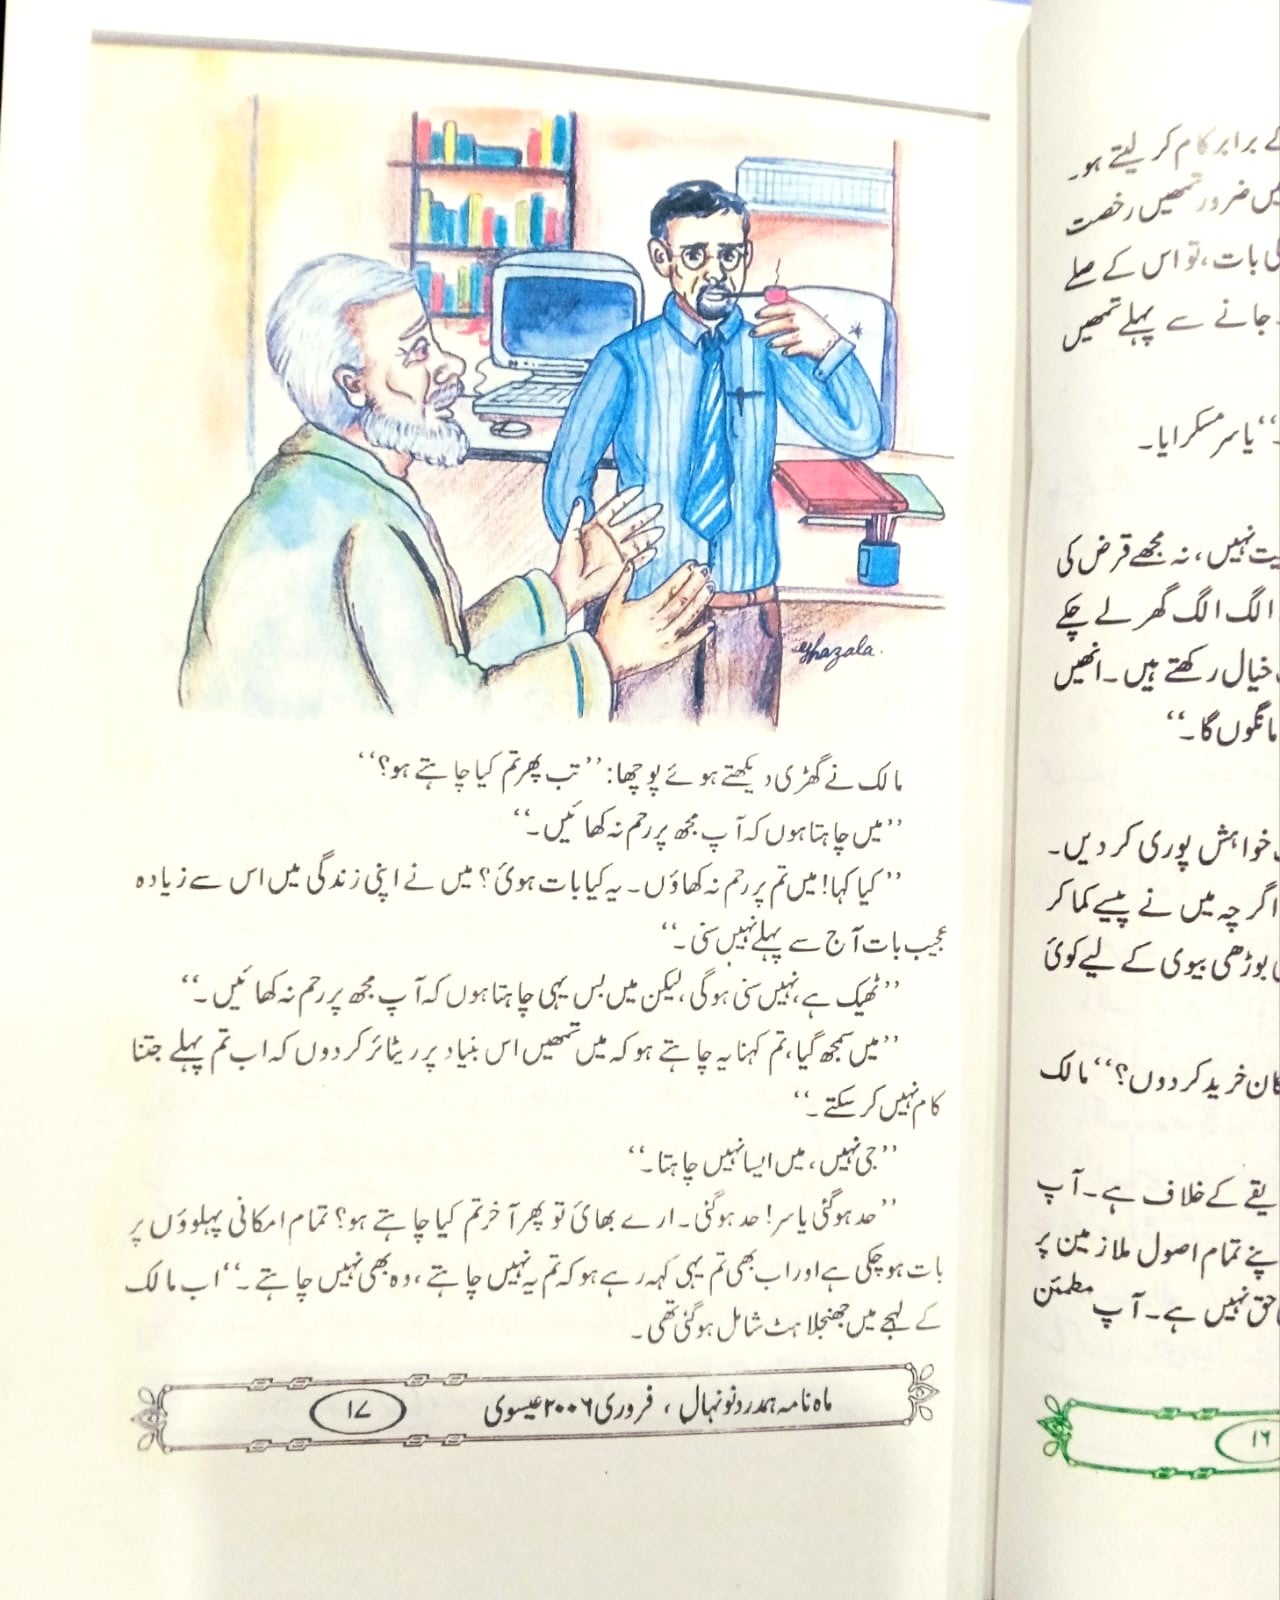 ے برابر کام کر لیتے ہو۔
ضرور تمھیں رخصت
بات، تو اس کے صلے
جانے سے پہلے تمھیں
‘‘ یاسر مسکرایا۔
نہیں، نہ مجھے قرض کی
الگ الگ گھر لے چکے
خیال رکھتے ہیں۔ انھیں
مانگوں گا۔‘‘
خواہش پوری کر دیں۔
اگرچہ میں نے پیسے کما کر
بوڑھی بیوی کے لیے کوئی
خرید کر دوں؟‘‘ مالک
کے خلاف ہے۔ آپ
تمام اصول ملازمین پر
حق نہیں ہے۔ آپ مطمئن
۱۶
Ghazala.
مالک نے گھڑی دیکھتے ہوئے پوچھا: ’’تب پھر تم کیا چاہتے ہو؟‘‘
’’میں چاہتا ہوں کہ آپ مجھ پر رحم نہ کھائیں۔‘‘
’’کیا کہا! میں تم پر رحم نہ کھاؤں۔ یہ کیا بات ہوئی؟ میں نے اپنی زندگی میں اس سے زیادہ
عجیب بات آج سے پہلے نہیں سنی۔‘‘
’’ٹھیک ہے، نہیں سنی ہوگی، لیکن میں بس یہی چاہتا ہوں کہ آپ مجھ پر رحم نہ کھائیں۔‘‘
’’میں سمجھ گیا، تم کہنا یہ چاہتے ہو کہ میں تمھیں اس بنیاد پر ریٹائر کر دوں کہ اب تم پہلے جتنا
کام نہیں کر سکتے۔‘‘
’’جی نہیں، میں ایسا نہیں چاہتا۔‘‘
’’حد ہوگئی یاسر! حد ہوگئی۔ ارے بھائی تو پھر آخر تم کیا چاہتے ہو؟ تمام امکانی پہلوؤں پر
بات ہو چکی ہے اور اب بھی تم یہی کہہ رہے ہو کہ تم یہ نہیں چاہتے، وہ بھی نہیں چاہتے۔‘‘ اب مالک
کے لہجے میں جھنجلاہٹ شامل ہوگئی تھی۔
ماہ نامہ ہمدرد نونہال ، فروری ۲۰۰۶ عیسوی ۱۷